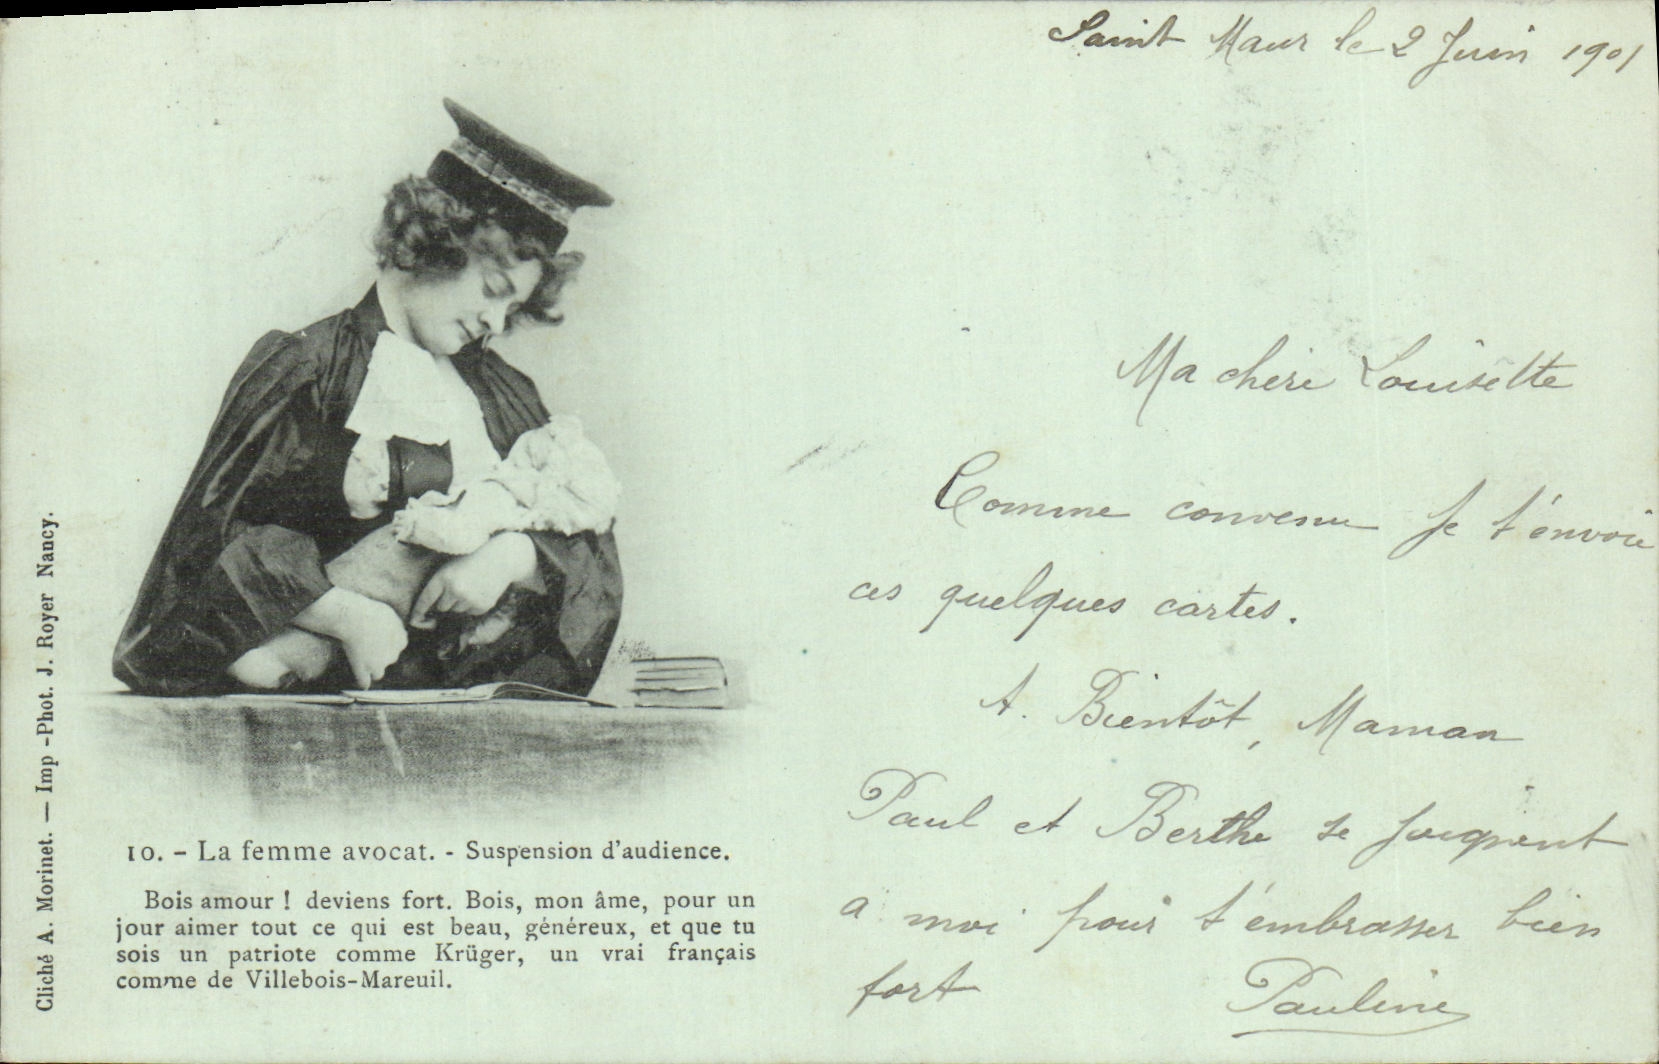 Saint Maur le 2 Juin 1901
Ma cheri Louisette
Comme convenu Je t'envoie
ces quelques cartes.
A. Bientôt, Maman
Paul et Berthe se joignent
a moi pour t'embrasser bien
fort Pauline
Cliché A. Morinet. — Imp -Phot. J. Royer Nancy.
10. - La femme avocat. - Suspension d'audience.
Bois amour ! deviens fort. Bois, mon âme, pour un
jour aimer tout ce qui est beau, généreux, et que tu
sois un patriote comme Krüger, un vrai français
comme de Villebois-Mareuil.